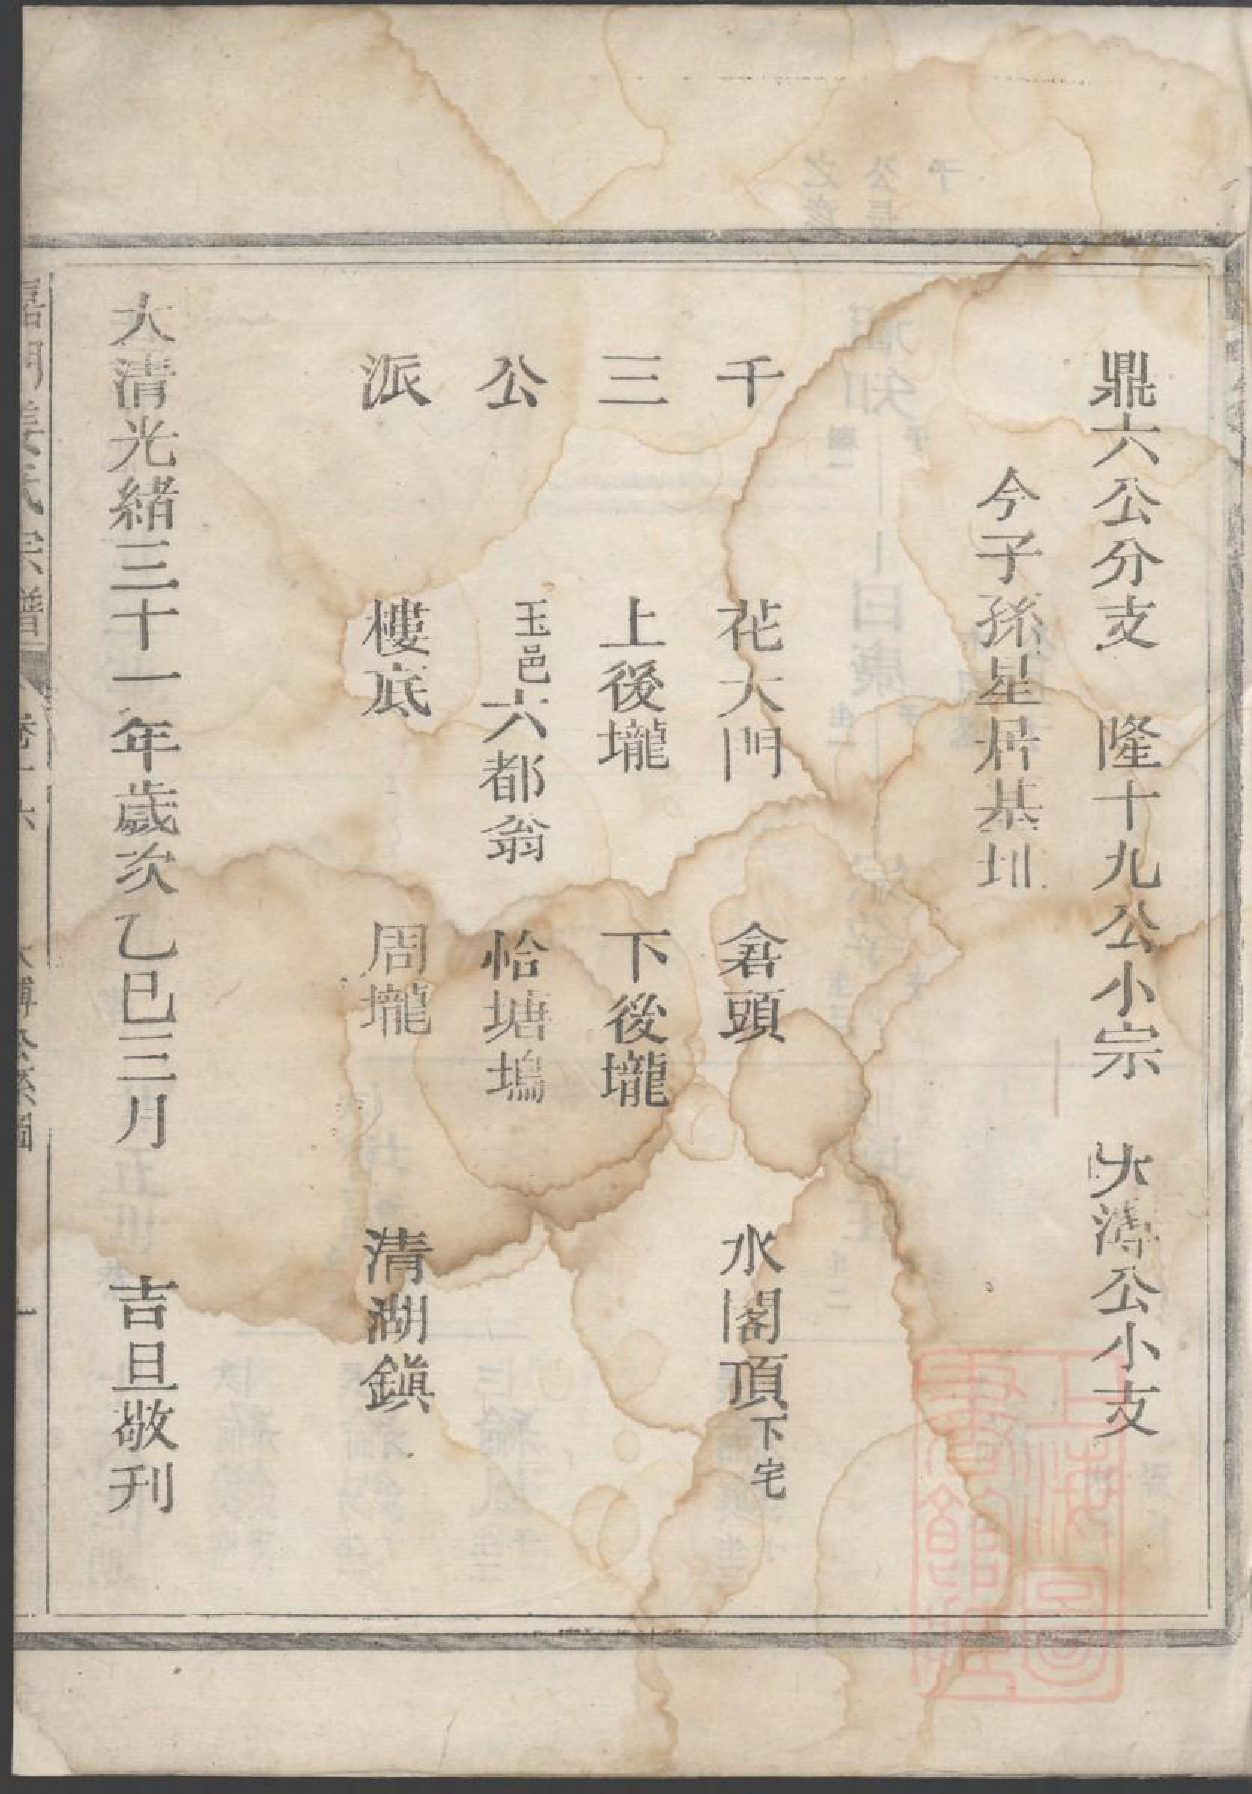 鼎六公分支　隆十九公小宗　大溥公小支
今子孫星居基圳
千　花大門　倉頭　水閣頂下宅
三　上後壠　下後壠
公　玉邑六都翁　恰塘塢
派　樓底　周壠　清湖鎮
大清光緒三十一年歲次乙巳三月　吉旦敬刊
姜氏宗譜